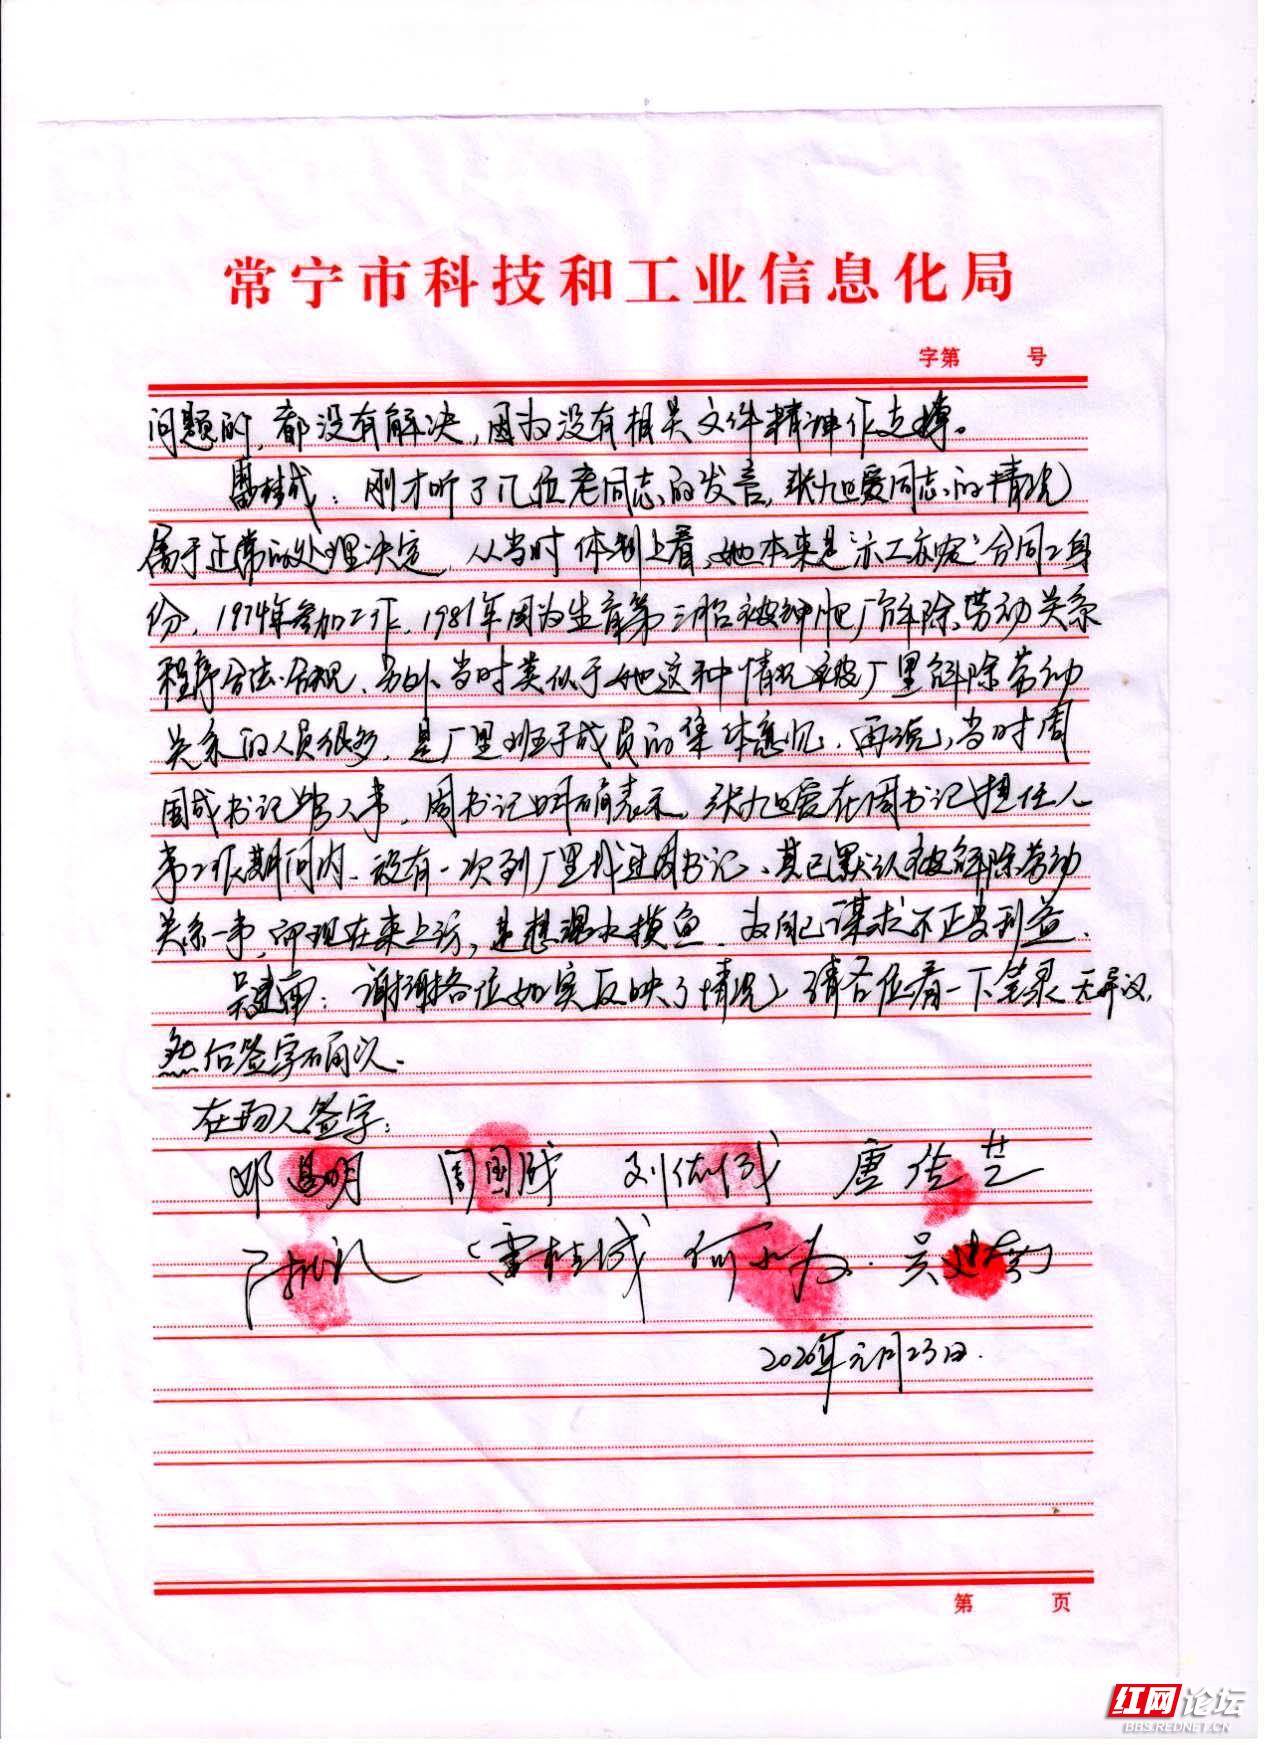 常宁市科技和工业信息化局
字第 号
问题的,都没有解决,因为没有相关文件精神作支撑。
雷桂成:刚才听了几位老同志的发言,张九爱同志的情况
属于正常的处理决定,从当时体制上看,她本来是亦工亦农合同工身
份,1974年参加工作,1981年因为生育第三胎被钟厂解除劳动关系
程序合法合规、另外、当时类似于她这种情况被厂里解除劳动
关系的人员很多,是厂里班子成员的集体意见,再说,当时周
国成书记管人事,周书记明确表示,张九爱在周书记担任人
事期间内、没有一次到厂里找过周书记、其已默认被解除劳动
关系一事,而现在来上访,是想混水摸鱼、为自己谋求不正当利益、
吴建南:谢谢各位如实反映了情况,请各位看一下笔录无异议,
然后签字确认.
在场人签字:
邓昌明 周国成 刘 成 唐佳芝
雷桂成 何 吴建南
2020年元月23日.
第 页
红网论坛
BBS.REDNET.CN